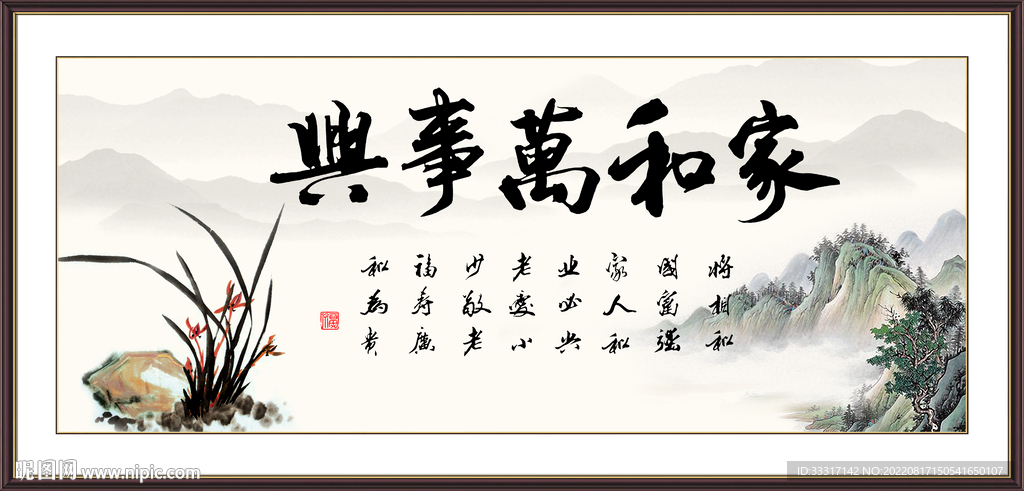 家和萬事興
將相和
國富強
家人和
业必兴
老愛小
少敬老
福寿廣
和為贵
昵图网 www.nipic.com
ID:33317142 NO:20220817150541650107